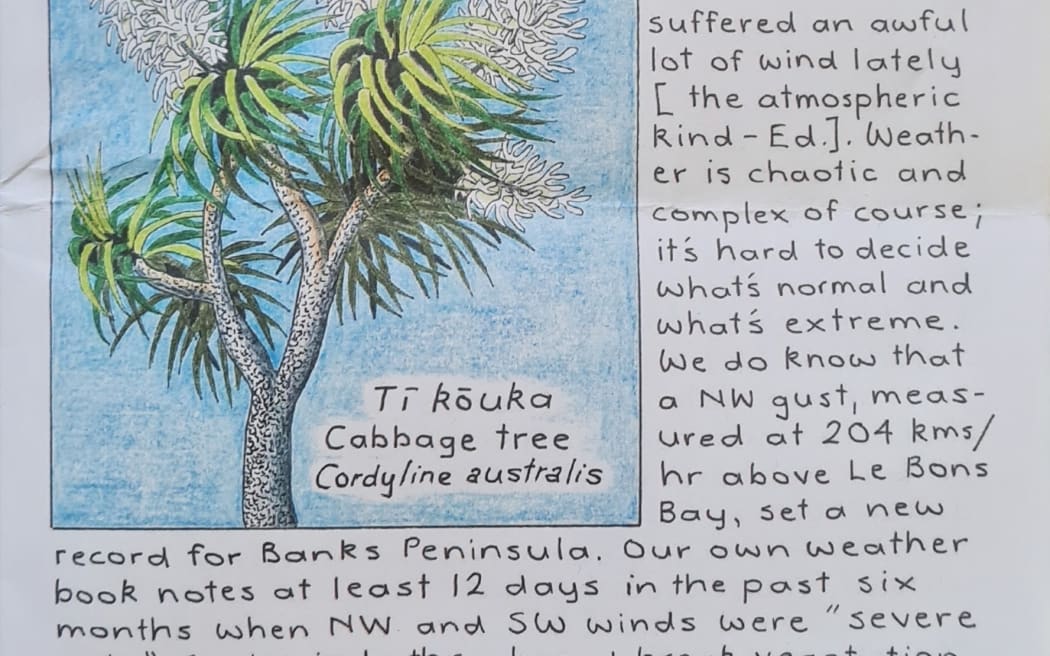 Tī kōuka
Cabbage tree
Cordyline australis
suffered an awful
lot of wind lately
[ the atmospheric
kind - Ed.]. Weath-
er is chaotic and
complex of course;
it's hard to decide
what's normal and
what's extreme.
We do know that
a NW gust, meas-
ured at 204 kms/
hr above Le Bons
Bay, set a new
record for Banks Peninsula. Our own weather
book notes at least 12 days in the past six
months when NW and SW winds were "severe